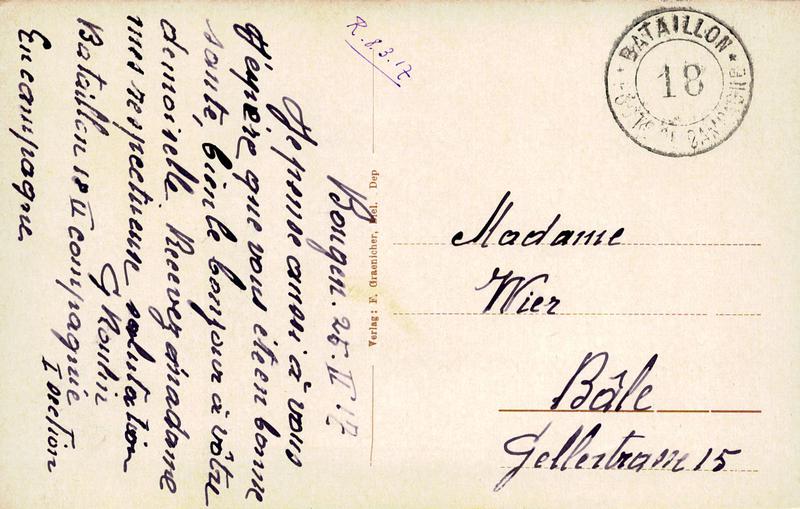 R. 8.3.17
Bougen. 25. II. 17
Je pense aussi à vous
J'éspère que vous ète en bonne
santé, bien le bonjour à vôtre
demoiselle. Recevez Madame
mes respectueux salutation
G Roulin
Bataillon 18 II compagnie
I section
En campagne
Verlag: F. Graenicher, Biel. Dep
BATAILLON
18
Madame
Wier
Bâle
Gellertrasse 15